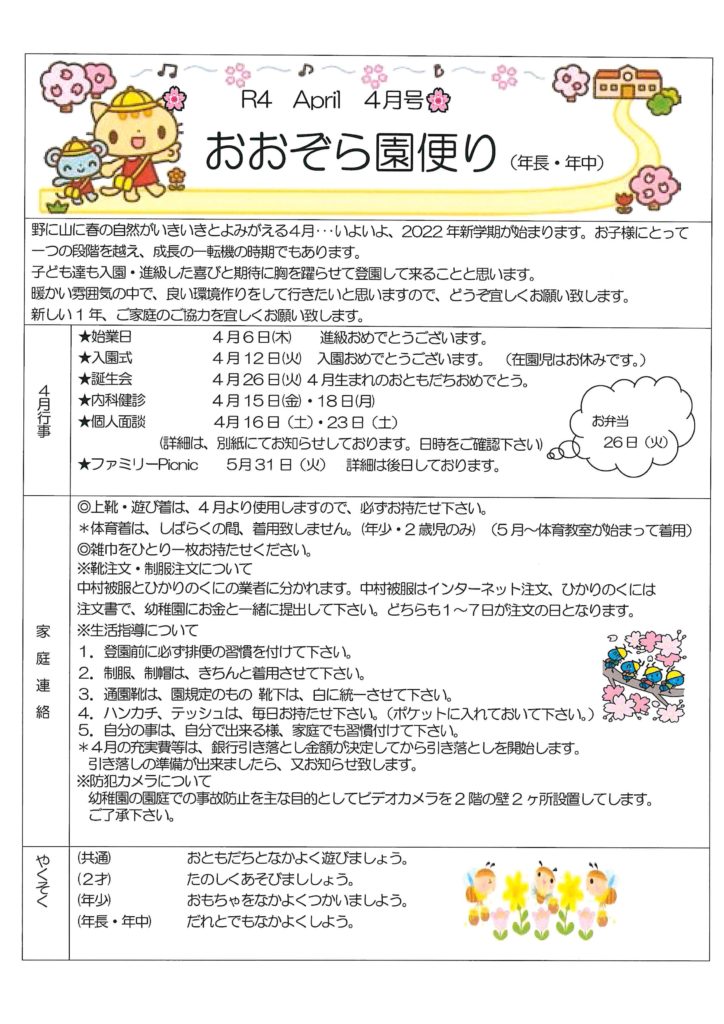 R4 April 4月号
おおぞら園便り（年長・年中）
野に山に春の自然がいきいきとよみがえる4月･･･いよいよ、2022年新学期が始まります。お子様にとって
一つの段階を越え、成長の一転機の時期でもあります。
子ども達も入園・進級した喜びと期待に胸を躍らせて登園して来ることと思います。
暖かい雰囲気の中で、良い環境作りをして行きたいと思いますので、どうぞ宜しくお願い致します。
新しい1年、ご家庭のご協力を宜しくお願い致します。
4月行事
★始業日 4月6日(木) 進級おめでとうございます。
★入園式 4月12日(火) 入園おめでとうございます。 （在園児はお休みです。）
★誕生会 4月26日(火) 4月生まれのおともだちおめでとう。
★内科健診 4月15日(金)・18日(月)
★個人面談 4月16日（土）・23日（土）
(詳細は、別紙にてお知らせしております。日時をご確認下さい)
★ファミリーPicnic 5月31日（火） 詳細は後日しております。
お弁当
26日（火）
家庭連絡
◎上靴・遊び着は、4月より使用しますので、必ずお持たせ下さい。
＊体育着は、しばらくの間、着用致しません。(年少・2歳児のみ) （5月～体育教室が始まって着用）
◎雑巾をひとり一枚お持たせください。
※靴注文・制服注文について
中村被服とひかりのくにの業者に分かれます。中村被服はインターネット注文、ひかりのくには
注文書で、幼稚園にお金と一緒に提出して下さい。どちらも1～7日が注文の日となります。
※生活指導について
1．登園前に必ず排便の習慣を付けて下さい。
2．制服、制帽は、きちんと着用させて下さい。
3．通園靴は、園規定のもの 靴下は、白に統一させて下さい。
4．ハンカチ、テッシュは、毎日お持たせ下さい。（ポケットに入れておいて下さい。）
5．自分の事は、自分で出来る様、家庭でも習慣付けて下さい。
＊4月の充実費等は、銀行引き落とし金額が決定してから引き落としを開始します。
引き落しの準備が出来ましたら、又お知らせ致します。
※防犯カメラについて
幼稚園の園庭での事故防止を主な目的としてビデオカメラを2階の壁2ヶ所設置してします。
ご了承下さい。
やくそく
(共通) おともだちとなかよく遊びましょう。
(2才) たのしくあそびまししょう。
(年少) おもちゃをなかよくつかいましょう。
(年長・年中) だれとでもなかよくしよう。